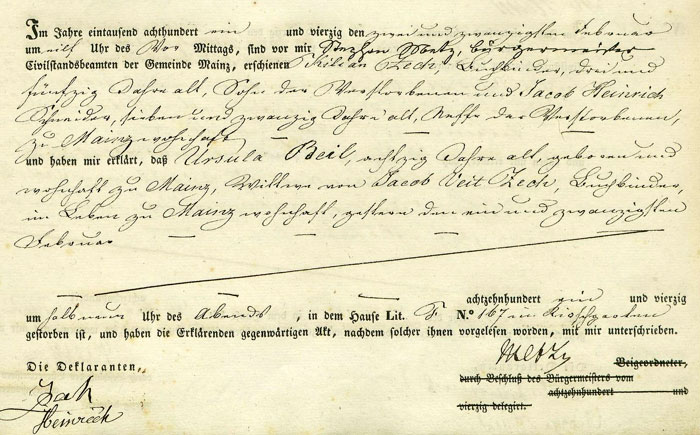 Im Jahre eintausend achthundert ein und vierzig den zwei und zwanzigsten Februar
um eilf Uhr des Vor Mittags, sind vor mir Stephan Metz, Bürgermeister
Civilstandsbeamten der Gemeinde Mainz, erschienen Kilian Zech, Buchbinder, drei und
fünfzig Jahre alt, Sohn der Verstorbenen und Jacob Heinrich
Schneider, sieben und zwanzig Jahre alt, Neffe der Verstorbenen,
zu Mainz wohnhaft
und haben mir erklärt, daß Ursula Beil, achtzig Jahre alt, geboren und
wohnhaft zu Mainz, Wittwe von Jacob Veit Zech, Buchbinder,
im Leben zu Mainz wohnhaft, gestern den ein und zwanzigsten
Februar
achtzehnhundert ein und vierzig
um halb neun Uhr des Abends, in dem Hause Lit. F N.º 167 in Kirschgarten
gestorben ist, und haben die Erklärenden gegenwärtigen Akt, nachdem solcher ihnen vorgelesen worden, mit mir unterschrieben.
Die Deklaranten,
Metz
Beigeordneter,
durch Beschluß des Bürgermeisters vom
achtzehnhundert und
vierzig delegirt.
Heinrich